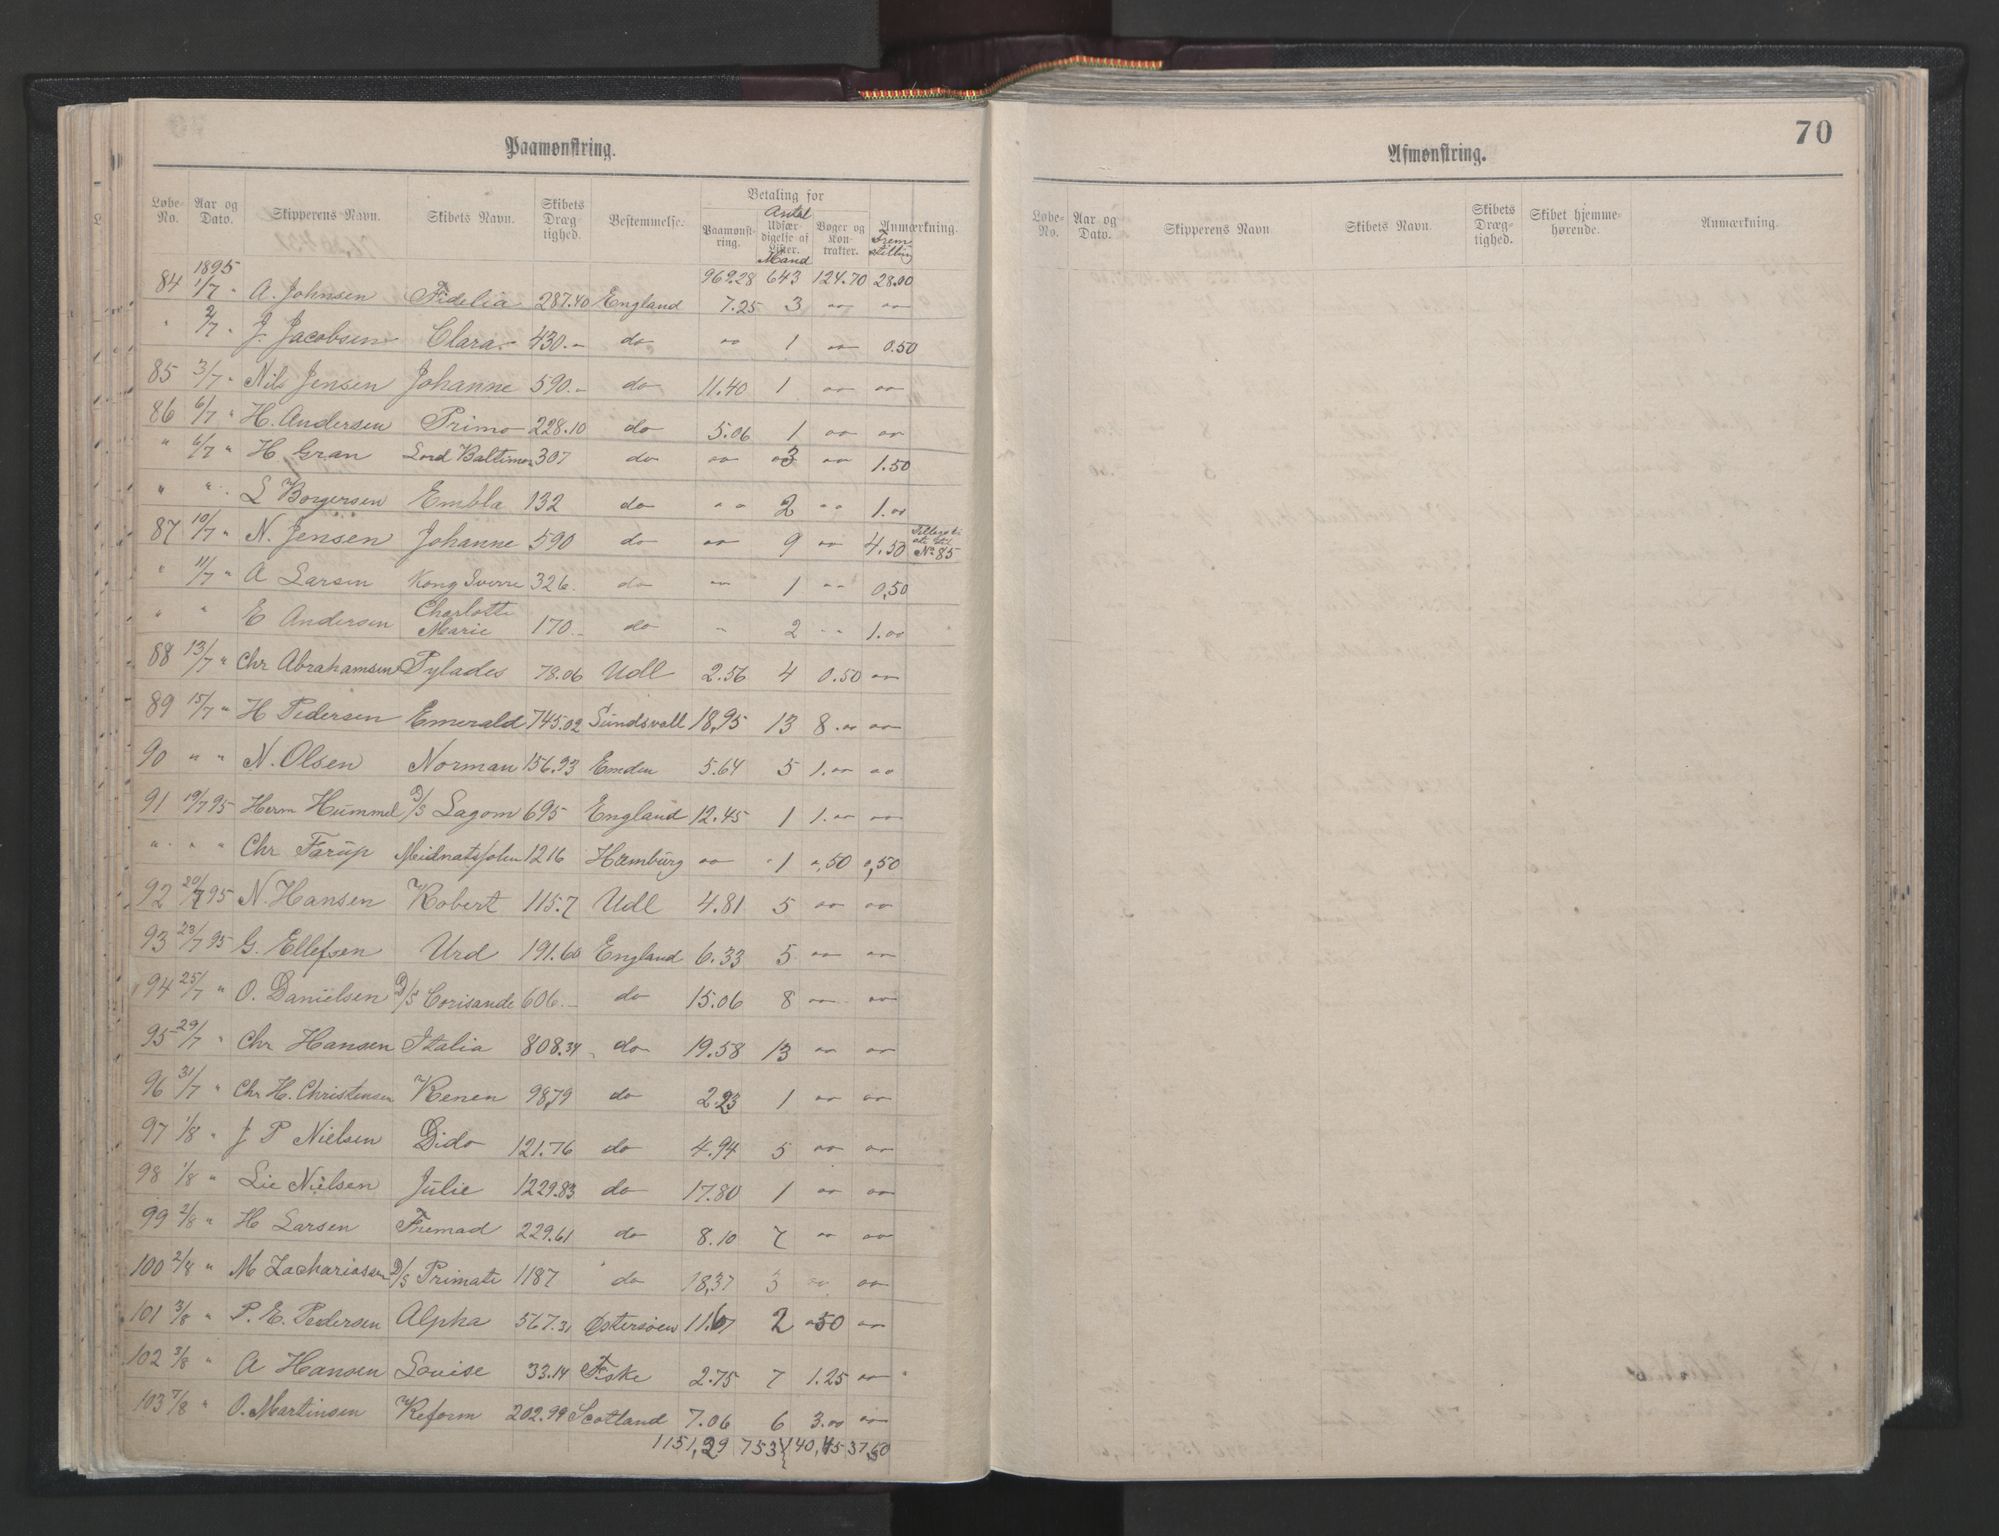 Paamønstring.
Løbe-No. Aar og Dato. Skipperens Navn. Skibets Navn. Skibets Dræg-tighed. Bestemmelse. Betaling for Paamønst-ring. Antal Udfær-digelse af Lister. Mand Bøger og Kon-trakter. Anmærkning. Frem stilling
1895 969.28 643 124.70 28.00
84 1/7 " A. Johnsen Fidelia 287.40 England 7.25 3 " "
" 2/7 " J. Jacobsen Clara 430.- do " 1 " 0.50
85 3/7 " Nils Jensen Johanne 590.- do 11.40 1 " "
86 6/7 " H. Andersen Primo 228.10 do 5.06 1 " "
" 6/7 " H Gran Lord Baltimor 307 do " 3 " 1.50
" " L Borgersen Embla 132 do " 2 " 1.00
87 10/7 " N. Jensen Johanne 590 do " 9 " 4.50 No 85
" 11/7 " A Larsen Kong Sverre 326. do " 1 " 0,50
" " E Andersen Charlotte Marie 170.- do " 2 " 1.00
88 13/7 " Chr Abrahamsen Pylades 78.06 Udl 2.56 4 0.50 "
89 15/7 " H Pedersen Emerald 745.02 Sundsvall 18,95 13 8.00 "
90 " " N. Olsen Norman 156.93 Emden 5.64 5 1.00 "
91 19/7 95 Herm Hummel D/S Lagom 695 England 12.45 1 1.00 "
" " " Chr Farup Midnatssolen 1216 Hamburg " 1 0,50 0,50
92 20/7 95 N. Hansen Robert 115.7 Udl 4.81 5 " "
93 23/7 95 G. Ellefsen Urd 191.60 England 6.33 5 " "
94 25/7 " O. Danielsen D/S Corisande 606.- do 15.06 8 " "
95 29/7 " Chr Hansen Italia 808.34 do 19.58 13 " "
96 31/7 " Chr H. Christensen Renen 98,79 do 2.23 1 " "
97 1/8 " J P Nielsen Dido 121.76 do 4.94 5 " "
98 1/8 " Lie Nielsen Julie 1229.83 do 17.80 1 " "
99 2/8 " H Larsen Fremad 229.61 do 8.10 7 " "
100 2/8 " M Zachariassen D/S Primate 1187 do 18,37 3 " "
101 3/8 " P. E. Pedersen Alpha 567.31 Østersøen 11.67 2 "50 "
102 3/8 " A Hansen Louise 33.14 Fiske 2.75 7 1.25 "
103 7/8 " O. Martinsen Reform 202.99 Scotland 7.06 6 3.00 "
1151,29 753 140,45 37,50
70
Afmønstring.
Løbe-No. Aar og Dato. Skipperens Navn. Skibets Navn. Skibets Dræg-tighed. Skibet hjemme-hørende. Anmærkning.